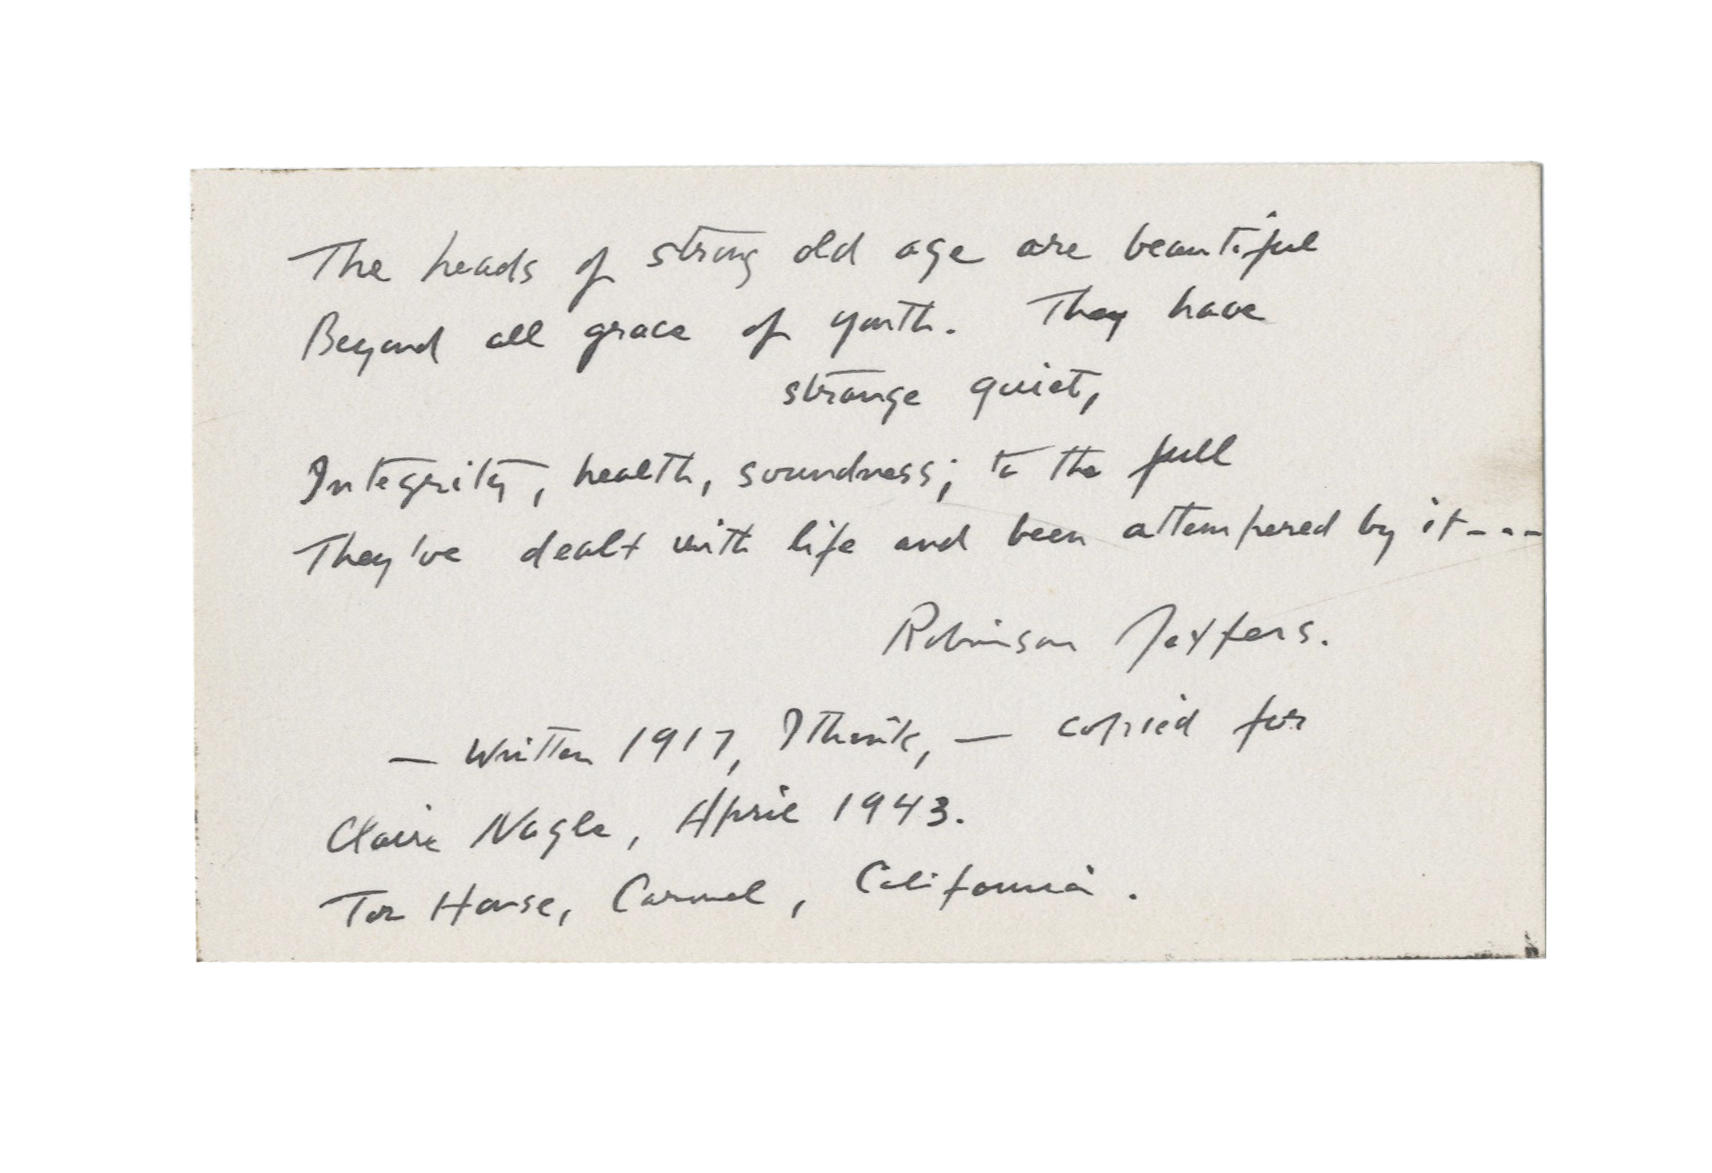 The heads of strong old age are beautiful
Beyond all grace of youth. They have
strange quiet,
Integrity, health, soundness; to the full
They've dealt with life and been attempered by it - - -
Robinson Jeffers.
— Written 1917, I think, — copied for
Claire Nagle, April 1943.
Tor House, Carmel, California.